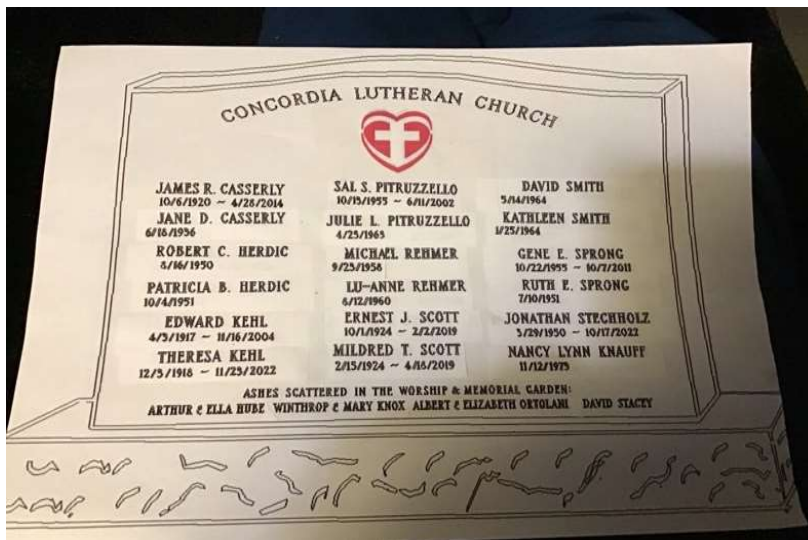 CONCORDIA LUTHERAN CHURCH
JAMES R. CASSERLY
10/6/1920 ~ 4/28/2014
JANE D. CASSERLY
6/18/1936
ROBERT C. HERDIC
8/16/1950
PATRICIA B. HERDIC
10/4/1951
EDWARD KEHL
4/5/1917 ~ 11/16/2004
THERESA KEHL
12/5/1918 ~ 11/25/2022
SAL S. PITRUZZELLO
10/15/1955 ~ 6/11/2002
JULIE L. PITRUZZELLO
4/25/1965
MICHAEL REHMER
9/25/1958
LU-ANNE REHMER
8/12/1960
ERNEST J. SCOTT
10/1/1924 ~ 2/2/2019
MILDRED T. SCOTT
2/15/1924 ~ 4/18/2019
DAVID SMITH
5/14/1964
KATHLEEN SMITH
1/25/1964
GENE E. SPRONG
10/22/1955 ~ 10/7/2011
RUTH E. SPRONG
7/10/1951
JONATHAN STECHHOLZ
5/29/1950 ~ 10/17/2022
NANCY LYNN KNAUFF
11/12/1975
ASHES SCATTERED IN THE WORSHIP & MEMORIAL GARDEN:
ARTHUR & ELLA HUBE WINTHROP & MARY KNOX ALBERT & ELIZABETH ORTOLANI DAVID STACEY